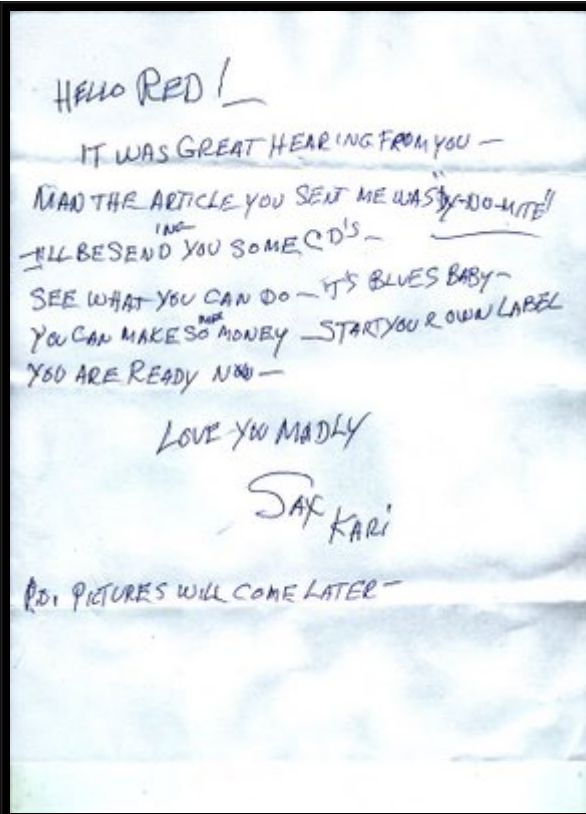 HELLO RED!
IT WAS GREAT HEARING FROM YOU —
MAN THE ARTICLE YOU SENT ME WAS "DY-NO-MITE"!
I'LL BE SENDING YOU SOME CD'S —
SEE WHAT YOU CAN DO — IT'S BLUES BABY —
YOU CAN MAKE SOME MONEY — START YOUR OWN LABEL
YOU ARE READY NOW —
LOVE YOU MADLY
SAX
KARI
P.S. PICTURES WILL COME LATER —